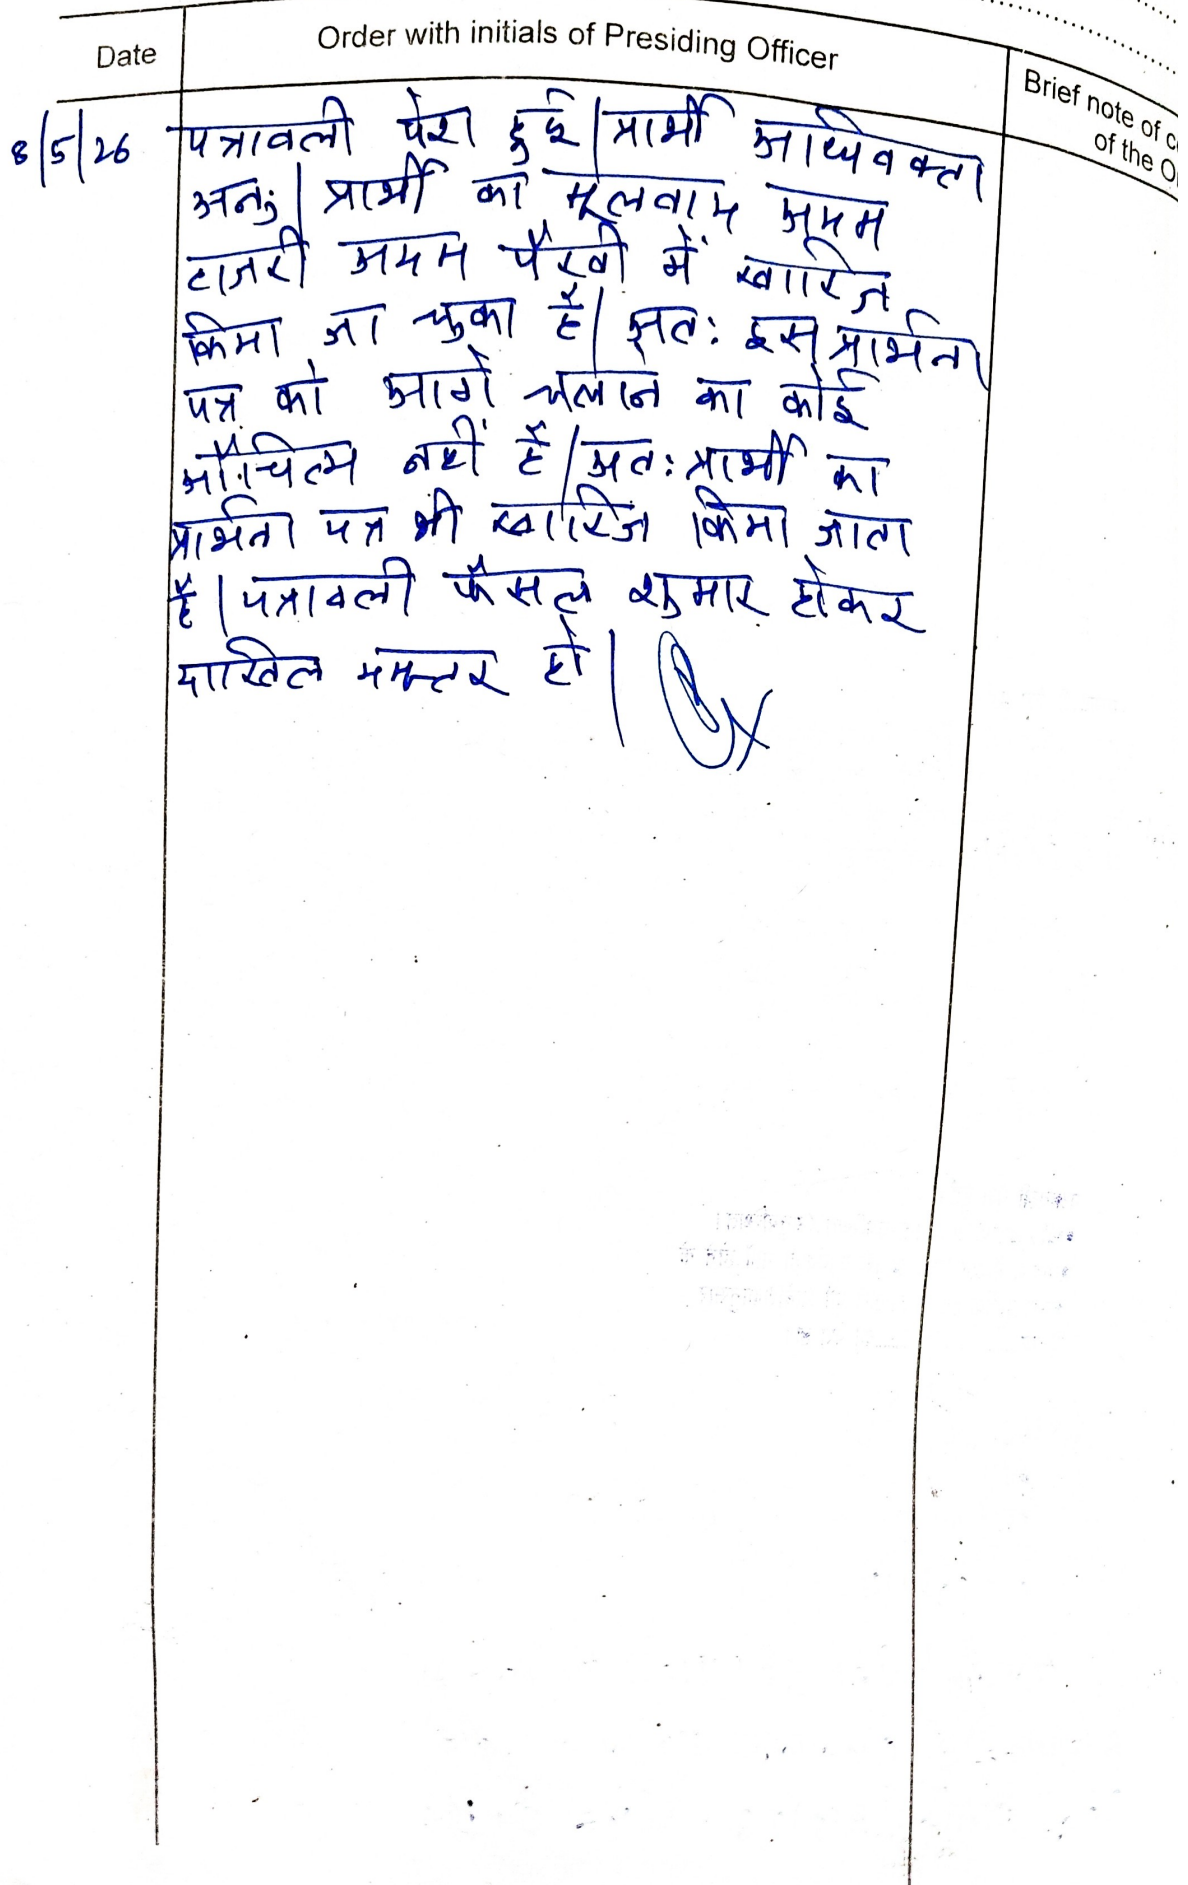 Date
Order with initials of Presiding Officer
Brief note of
of the
8/5/26
पत्रावली पेश हुई। प्रार्थी अधिवक्ता
अनु.। प्रार्थी का मूलवाद अदम
हाजरी अदम पैरवी में खारिज
किया जा चुका है। अतः इस प्रार्थना
पत्र को आगे चलाने का कोई
औचित्य नहीं है। अतः प्रार्थी का
प्रार्थना पत्र भी खारिज किया जाता
है। पत्रावली फैसल शुमार होकर
दाखिल दफ्तर हो।